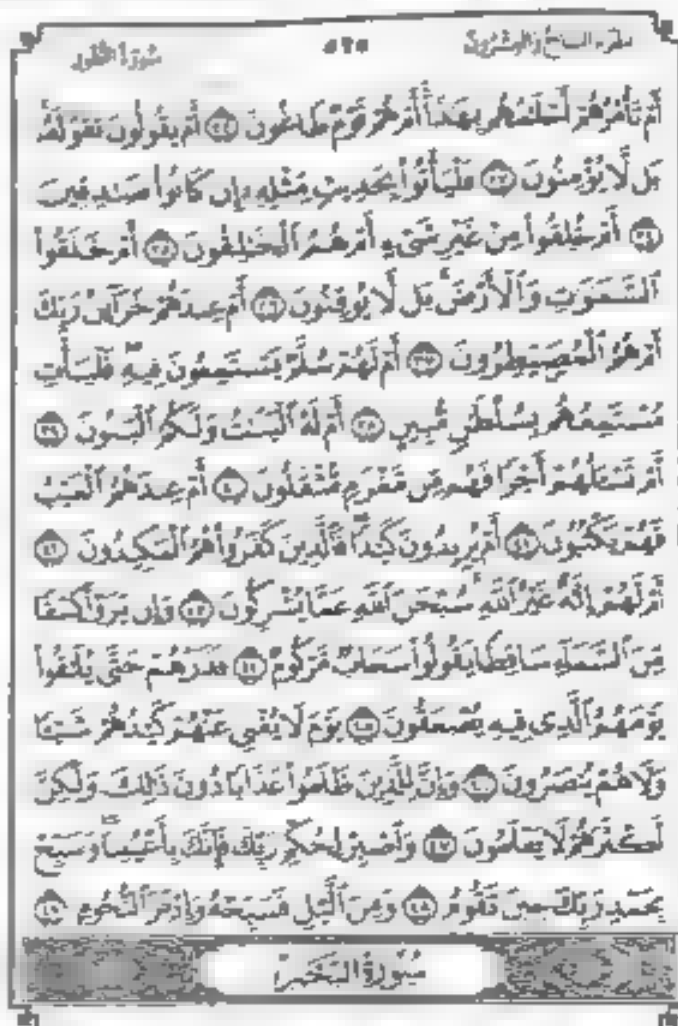 الجزء السابع والعشرون ٥٢٥ سورة الطور
أَمْ تَأْمُرُهُمْ أَحْلَامُهُم بِهَٰذَا أَمْ هُمْ قَوْمٌ طَاغُونَ ٣٢ أَمْ يَقُولُونَ تَقَوَّلَهُ
بَل لَّا يُؤْمِنُونَ ٣٣ فَلْيَأْتُوا بِحَدِيثٍ مِّثْلِهِ إِن كَانُوا صَادِقِينَ
٣٤ أَمْ خُلِقُوا مِنْ غَيْرِ شَيْءٍ أَمْ هُمُ الْخَالِقُونَ ٣٥ أَمْ خَلَقُوا
السَّمَاوَاتِ وَالْأَرْضَ بَل لَّا يُوقِنُونَ ٣٦ أَمْ عِندَهُمْ خَزَائِنُ رَبِّكَ
أَمْ هُمُ الْمُصَيْطِرُونَ ٣٧ أَمْ لَهُمْ سُلَّمٌ يَسْتَمِعُونَ فِيهِ فَلْيَأْتِ
مُسْتَمِعُهُم بِسُلْطَانٍ مُّبِينٍ ٣٨ أَمْ لَهُ الْبَنَاتُ وَلَكُمُ الْبَنُونَ ٣٩
أَمْ تَسْأَلُهُمْ أَجْرًا فَهُم مِّن مَّغْرَمٍ مُّثْقَلُونَ ٤٠ أَمْ عِندَهُمُ الْغَيْبُ
فَهُمْ يَكْتُبُونَ ٤١ أَمْ يُرِيدُونَ كَيْدًا فَالَّذِينَ كَفَرُوا هُمُ الْمَكِيدُونَ ٤٢
أَمْ لَهُمْ إِلَٰهٌ غَيْرُ اللَّهِ سُبْحَانَ اللَّهِ عَمَّا يُشْرِكُونَ ٤٣ وَإِن يَرَوْا كِسْفًا
مِّنَ السَّمَاءِ سَاقِطًا يَقُولُوا سَحَابٌ مَّرْكُومٌ ٤٤ فَذَرْهُمْ حَتَّىٰ يُلَاقُوا
يَوْمَهُمُ الَّذِي فِيهِ يُصْعَقُونَ ٤٥ يَوْمَ لَا يُغْنِي عَنْهُمْ كَيْدُهُمْ شَيْئًا
وَلَا هُمْ يُنصَرُونَ ٤٦ وَإِنَّ لِلَّذِينَ ظَلَمُوا عَذَابًا دُونَ ذَٰلِكَ وَلَٰكِنَّ
أَكْثَرَهُمْ لَا يَعْلَمُونَ ٤٧ وَاصْبِرْ لِحُكْمِ رَبِّكَ فَإِنَّكَ بِأَعْيُنِنَا وَسَبِّحْ
بِحَمْدِ رَبِّكَ حِينَ تَقُومُ ٤٨ وَمِنَ اللَّيْلِ فَسَبِّحْهُ وَإِدْبَارَ النُّجُومِ ٤٩
سُورَةُ النَّجْمِ